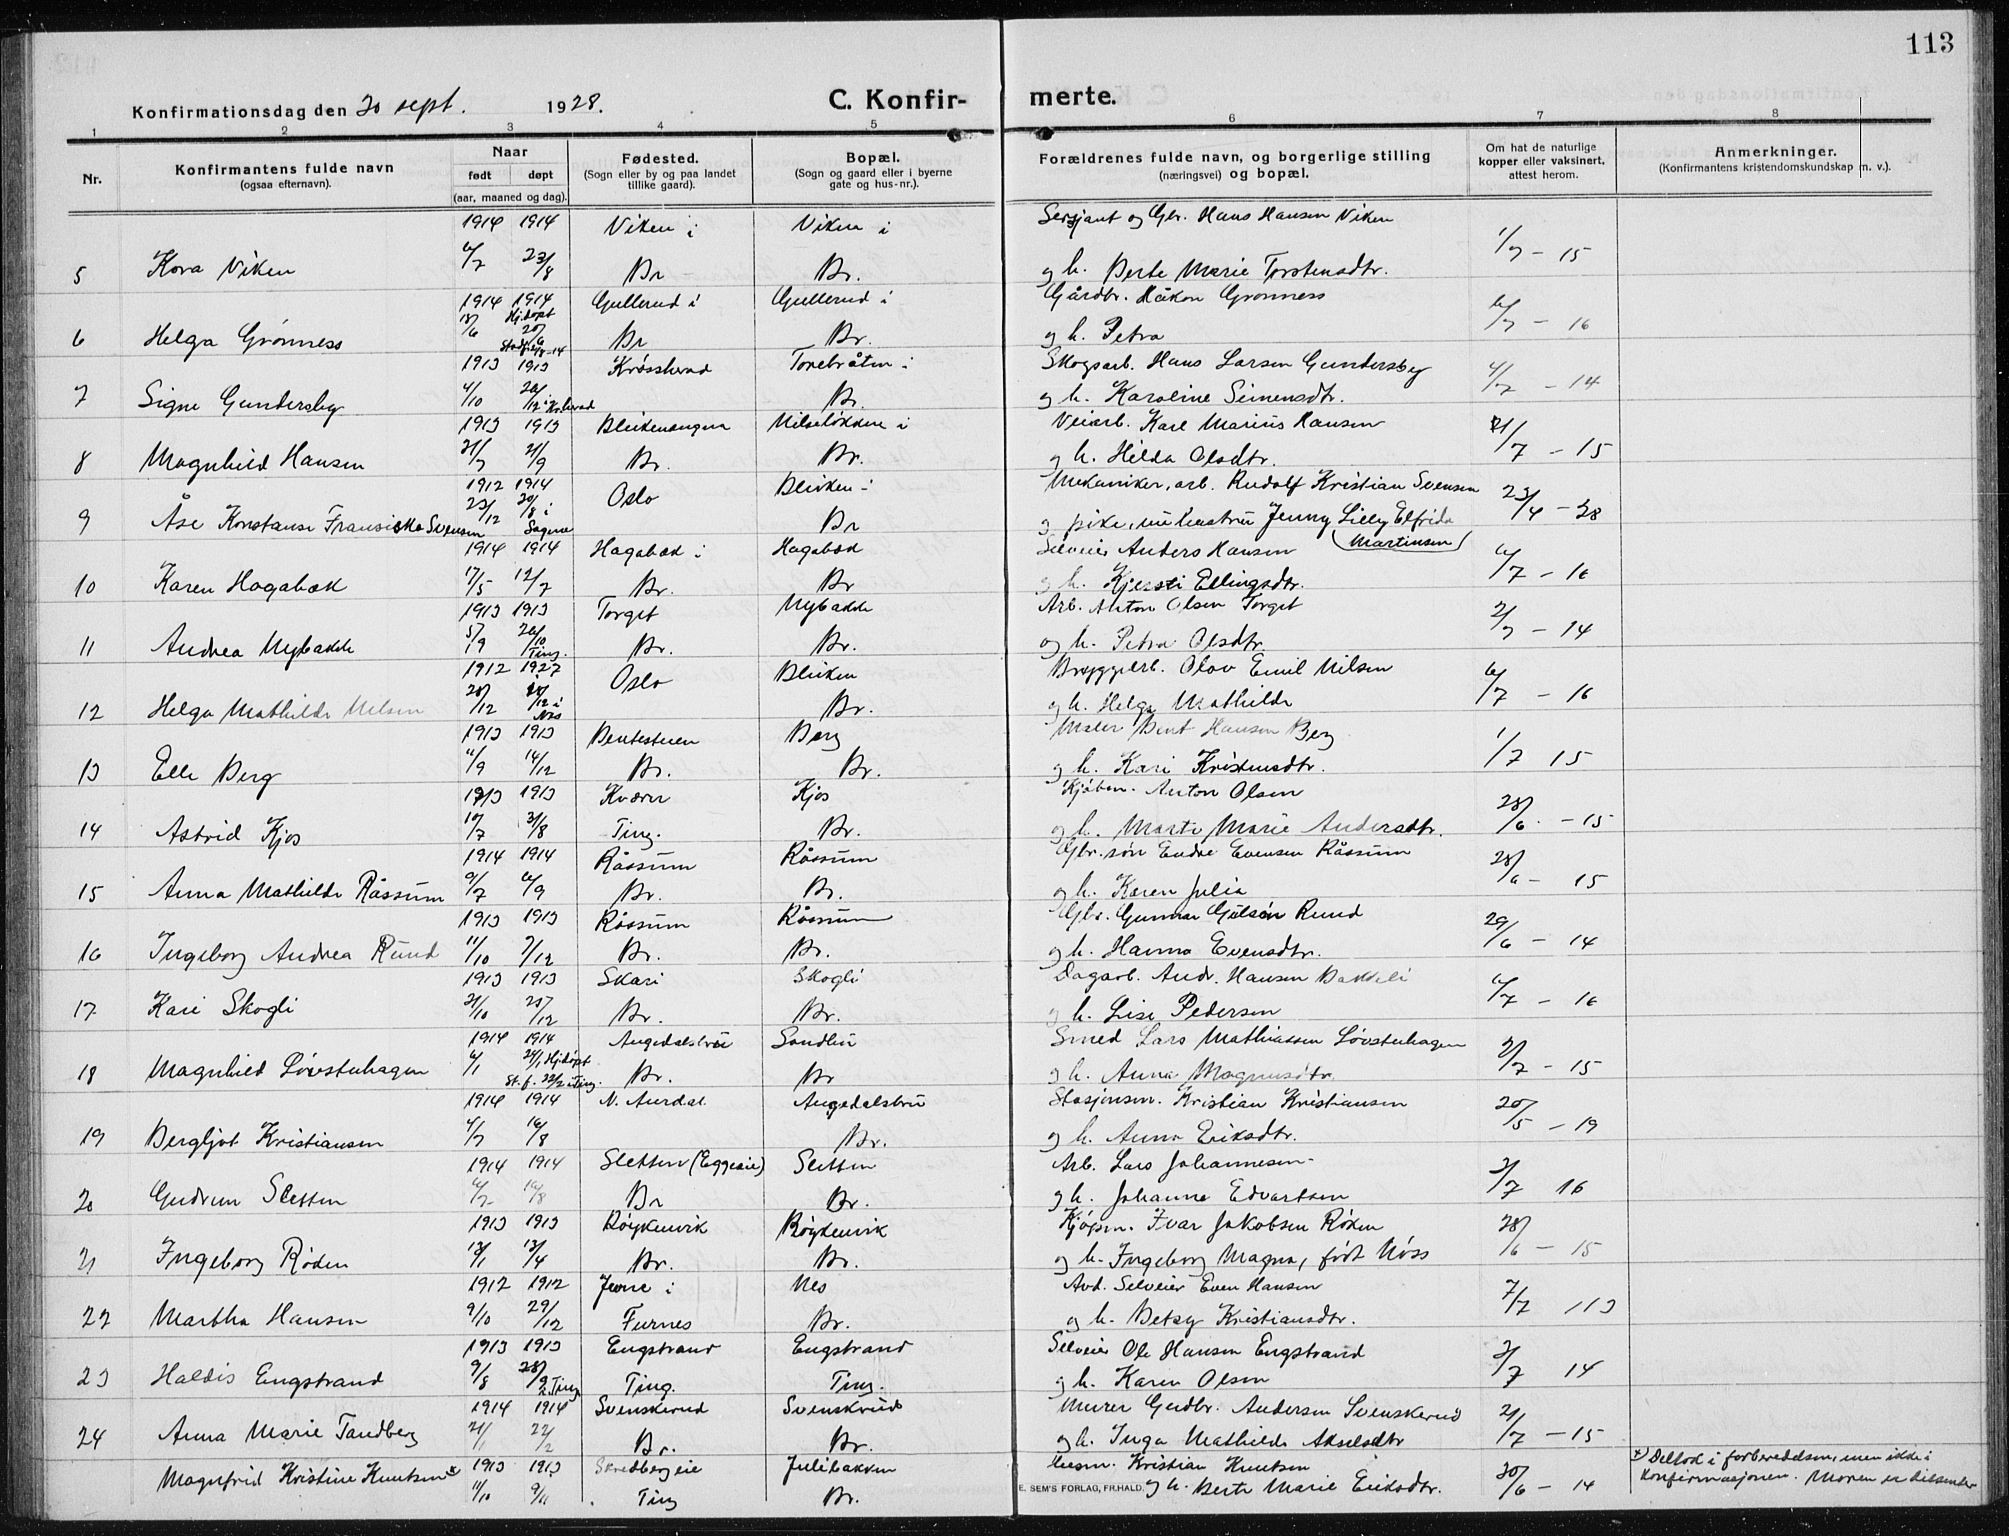 113
Konfirmationsdag den 30 sept. 1928. C. Konfir- merte.
1 2 3 4 5 6 7 8
Nr. Konfirmantens fulde navn (ogsaa efternavn). Naar født døpt (aar, maaned og dag). Fødested. (Sogn eller by og paa landet tillike gaard). Bopæl. (Sogn og gaard eller i byerne gate og hus-nr.). Forældrenes fulde navn, og borgerlige stilling (næringsvei) og bopæl. Om hat de naturlige kopper eller vaksinert, attest herom. Anmerkninger. (Konfirmantens kristendomskundskap m. v.).
1914 1914 Viken i Viken i Sersjant og Gbr. Hans Hansen Viken
5 Kora Viken 6/7 23/8 Br Br. og h. Berte Marie Torstensdtr. 1/7 - 15
1914 1914 Gullerud i Gullerud i Gårdbr. Håkon Grønness
6 Helga Grønness 18/6 Hj.døpt 20/6 Br Br. og h. Petra 6/7 - 16
1913 1913 Krødsherad Torebråten i Skogsarb. Hans Larsen Gundersby
7 Signe Gundersby 4/10 26/12 i Kr.herad Br. og h. Karoline Simensdtr. 4/7 - 14
1913 1913 Blikenengen Nilseløkken i Veiarb. Karl Marius Hansen
8 Magnhild Hansen 31/7 21/9 Br. Br. og h. Hilda Olsdtr. 21/7 - 15
1912 1914 Oslo Blirken i Mekaniker, arb. Rudolf Kristian Svensen
9 Åse Konstanse Fransiska Svensen 23/12 20/8 i Sagene Br og pike, Jenny Lilly Elfrida (Martinsen) 23/4 - 28
1914 1914 Hagabæk i Hagabæk Selveier Anders Hansen
10 Karen Hagabæk 17/5 12/7 Br. Br og h. Kjersti Ellingsdtr. 6/7 - 16
1913 1913 Torget Nybakke Arb. Anton Olsen Torget
11 Andrea Nybakke 5/9 26/10 Ting. Br. Br. og h. Petra Olsdtr. 2/7 - 14
1912 1927 Oslo Blirken Bryggearb. Olav Emil Nilsen
12 Helga Mathilde Nilsen 28/12 18/12 i Nes Br. og h. Helga Mathilde 6/7 - 16
1913 1913 Bentestuen Berg Maler Bent Hansen Berg
13 Elle Berg 11/9 14/12 Br. Br. og h. Kari Kristensdtr. 1/7 15
1913 1913 Kværn Kjos Kjøbm. Anton Olsen
14 Astrid Kjos 10/7 31/8 Ting. Br. og h. Marte Marie Andersdtr. 28/6 - 15
1914 1914 Råssum Råssum Gbr. søn Endre Evensen Råssum
15 Anna Mathilde Råssum 9/7 6/9 Br. Br. og h. Karen Julia 28/6 - 15
1913 1913 Råssum Råssum Gbr. Gunnar Gulsøn Rund
16 Ingeborg Andrea Rund 11/10 7/12 Br. Br. og h. Hanna Evensdtr. 29/6 - 14
1913 1913 Skari Skogli Dagarb. Andr. Hansen Bakkeli
17 Kari Skogli 31/10 28/12 Br. Br. og h. Lise Pedersen 6/7 - 16
1914 1914 Angedalsbru Sandlien Smed Lars Mathiassen Løvstuhagen
18 Magnhild Løvstuhagen 6/1 24/1 Hj.døpt St.f. 22/2 i Ting. Br. Br og h. Anna Magnusdtr. 2/7 - 15
1914 1914 N. Aurdal Angedalsbru Stasjonsm. Kristian Kristiansen
19 Bergljot Kristiansen 4/7 16/8 Br. og h. Anna Eriksdtr. 20/5 - 19
1914 1914 Sletten (Eggeeie) Sletten Arb. Lars Johannesen
20 Gudrun Sletten 6/7 16/8 Br Br. og h. Johanne Edvartsen 3/7 16
1913 1913 Røykenvik Røykenvik Kjøpm. Ivar Jakobsen Røden
21 Ingeborg Røden 13/1 13/4 Br. Br. og h. Ingeborg Magna, født Næss 28/6 - 15
1912 1912 Jevne i Nes Avd. Selveier Even Hansen
22 Martha Hansen 9/10 29/12 Furnes Br. og h. Betsy Kristiansdtr. 7/7 113
1913 1913 Engstrand Engstrand Selveier Ole Hansen Engstrand
23 Haldis Engstrand 9/8 28/9 i Ting Ting. Ting. og h. Karen Olsen 3/7 14
1914 1914 Svenskerud Svenskrud Murer Gudbr. Andersen Svenskerud
24 Anna Marie Tandberg 21/1 22/2 Br. Br. og h. Inga Mathilde Akselsdtr 21/7 - 15
Magnfrid Kristine Knutsen* 1913 1913 Skredbergeie Julibakken Kristian Knutsen *) Deltok i forberedelsen, men ikke i
11/10 9/11 Ting Br. og h. Berte Marie Eriksdtr. 30/6 - 14 Konfirmasjonen. Moren er dissenter
E. SEM'S FORLAG, FR.HALD.